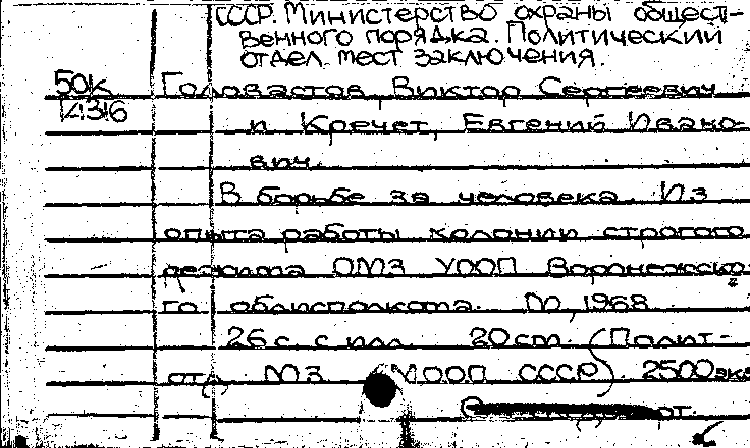 СССР. Министерство охраны общест-
венного порядка. Политический
отдел мест заключения.
50к Головастов, Виктор Сергеевич
и Кречет, Евгений Ивано-
вич.
В борьбе за человека. Из
опыта работы колонии строгого
режима ОМЗ УООП Воронежско-
го облисполкома. М., 1968
26 с. с илл. 20 см. (Полит-
отд. МЗ МООП СССР). 2500 экз